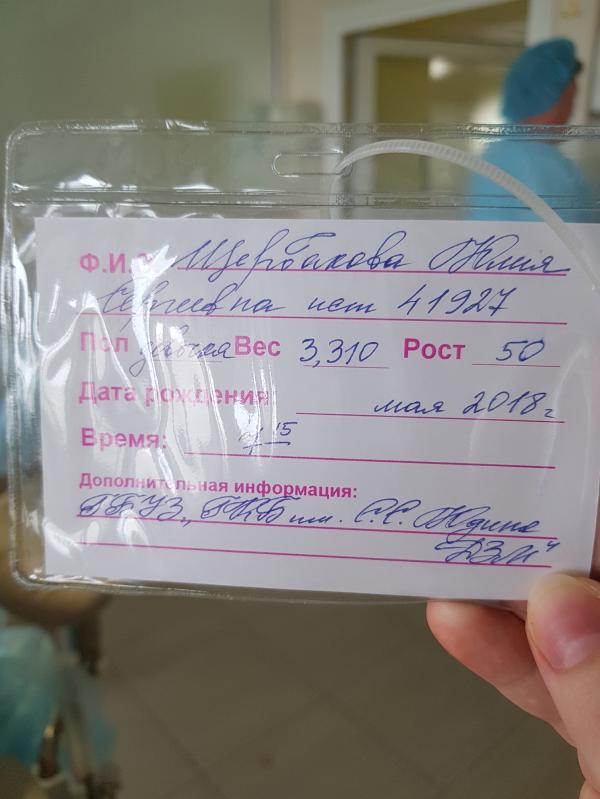 Ф.И.О. Щербакова Юлия
Сергеевна ист 41927
Пол девочка Вес 3,310 Рост 50
Дата рождения мая 2018г
Время: 15
Дополнительная информация:
ГБУЗ „ГКБ им. С.С. Юдина
ДЗМ"